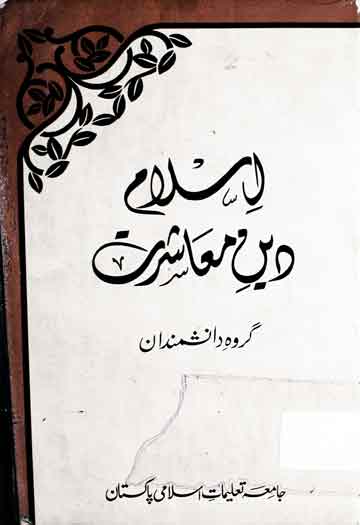 اِسلام
دینِ معاشرت
گروہِ دانشمندان
جامعہ تعلیماتِ اسلامی پاکستان